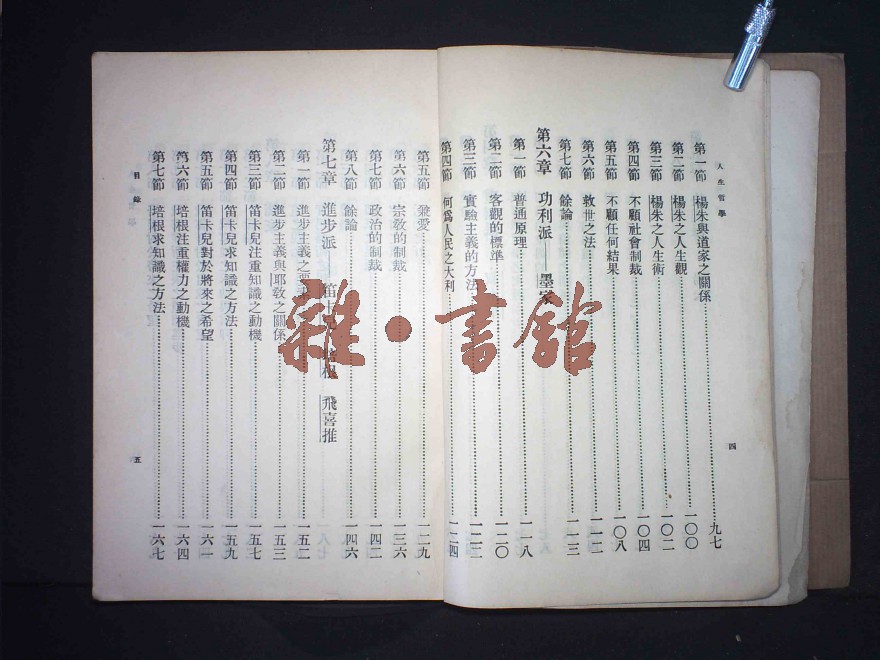 人生哲學
第一節 楊朱與道家之關係 九七
第二節 楊朱之人生觀 一〇〇
第三節 楊朱之人生術 一〇二
第四節 不顧社會制裁 一〇四
第五節 不顧任何結果 一〇八
第六節 救世之法 一一二
第七節 餘論 一一三
第六章 功利派——墨家
第一節 普通原理 一一八
第二節 客觀的標準 一二〇
第三節 實驗主義的方法 一二二
第四節 何爲人民之大利 一二四
四
第五節 兼愛 一二九
第六節 宗敎的制裁 一三六
第七節 政治的制裁 一四二
第八節 餘論 一四六
第七章 進步派——笛卡兒 培根 飛喜推
第一節 進步主義之 一五二
第二節 進步主義與耶敎之關係 一五三
第三節 笛卡兒注重知識之動機 一五七
第四節 笛卡兒求知識之方法 一五九
第五節 笛卡兒對於將來之希望 一六一
第六節 培根注重權力之動機 一六四
第七節 培根求知識之方法 一六七
目錄
五
雜·書館